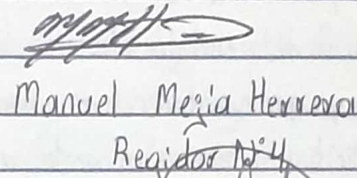 Manuel Mejia Herrera
Regidor N°4